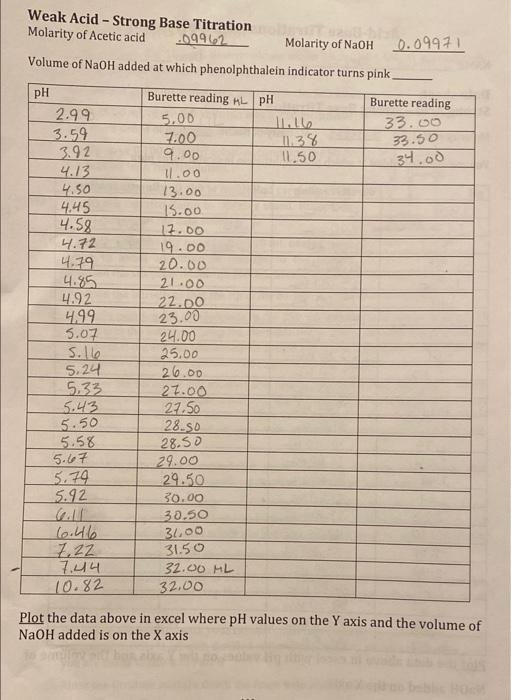 Weak Acid – Strong Base Titration
Molarity of Acetic acid .09962 Molarity of NaOH 0.09971
Volume of NaOH added at which phenolphthalein indicator turns pink
pH Burette reading mL pH Burette reading
2.99 5.00 11.16 33.00
3.59 7.00 11.38 33.50
3.92 9.00 11.50 34.00
4.13 11.00
4.30 13.00
4.45 15.00
4.58 17.00
4.72 19.00
4.79 20.00
4.85 21.00
4.92 22.00
4.99 23.00
5.07 24.00
5.16 25.00
5.24 26.00
5.33 27.00
5.43 27.50
5.50 28.50
5.58 28.50
5.67 29.00
5.79 29.50
5.92 30.00
6.11 30.50
6.46 31.00
7.22 31.50
7.44 32.00 ML
10.82 32.00
Plot the data above in excel where pH values on the Y axis and the volume of
NaOH added is on the X axis